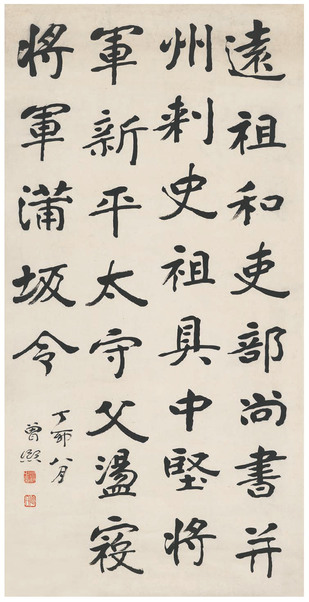 遠祖和吏部尚書并
州刺史祖具中堅將
軍新平太守父盪寇
將軍蒲坂令
丁卯八月
曾熙